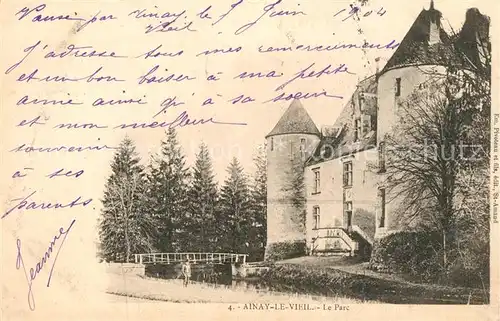 Passé par Ainay le
Vieil 5 Juin 1904
J'adresse tous mes remerciements
et un bon baiser à ma petite
amie ainsi qu'à sa soeur
et mon meilleur
souvenir
à ses
parents
Jeanne
Em. Pivoteau et fils, édit., St-Amand
4. - AINAY-LE-VIEIL. - Le Parc